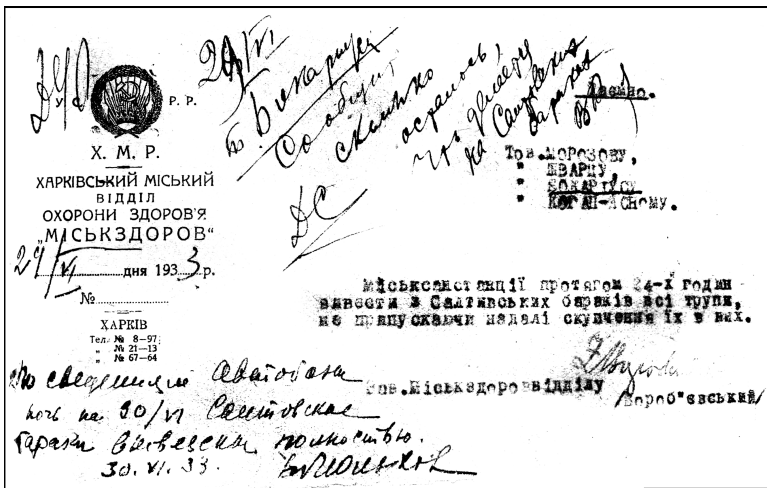 У. Р. Р.
Х. М. Р.
ХАРКІВСЬКИЙ МІСЬКИЙ
ВІДДІЛ
ОХОРОНИ ЗДОРОВ'Я
„МІСЬКЗДОРОВ“
29/VI дня 1933 р.
№
ХАРКІВ
Тел. № 8—97
„ № 21—13
„ № 67—64
29/VI
т. Бокариус
Сообщит
сколько
осталось,
на Салтовских
бараках
ДС
Таємно.
Тов. МОРОЗОВУ,
" ШВАРЦУ,
" БОКАРІУСУ
" КОГАН-ЯСНОМУ.
Міськсанстанції протягом 24-х годин
вивести з Салтивських бараків всі трупи,
не припускаючи надалі скупчення їх в них.
Зав. Міськздороввідділу
/Вороб"євський/
По сведениям
ночь на 30/VI Салтовские
бараки вывезены полностью.
30.VI.33.